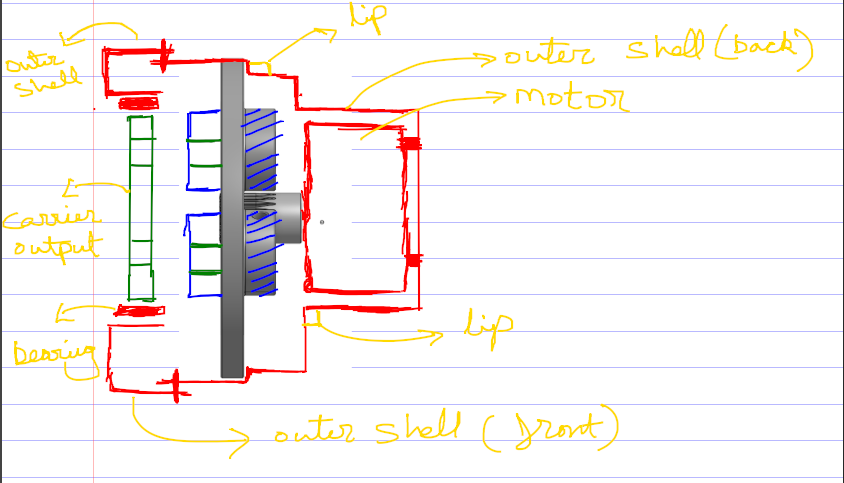 lip
outer shell
outer shell (back)
motor
carrier output
lip
bearing
outer shell (front)